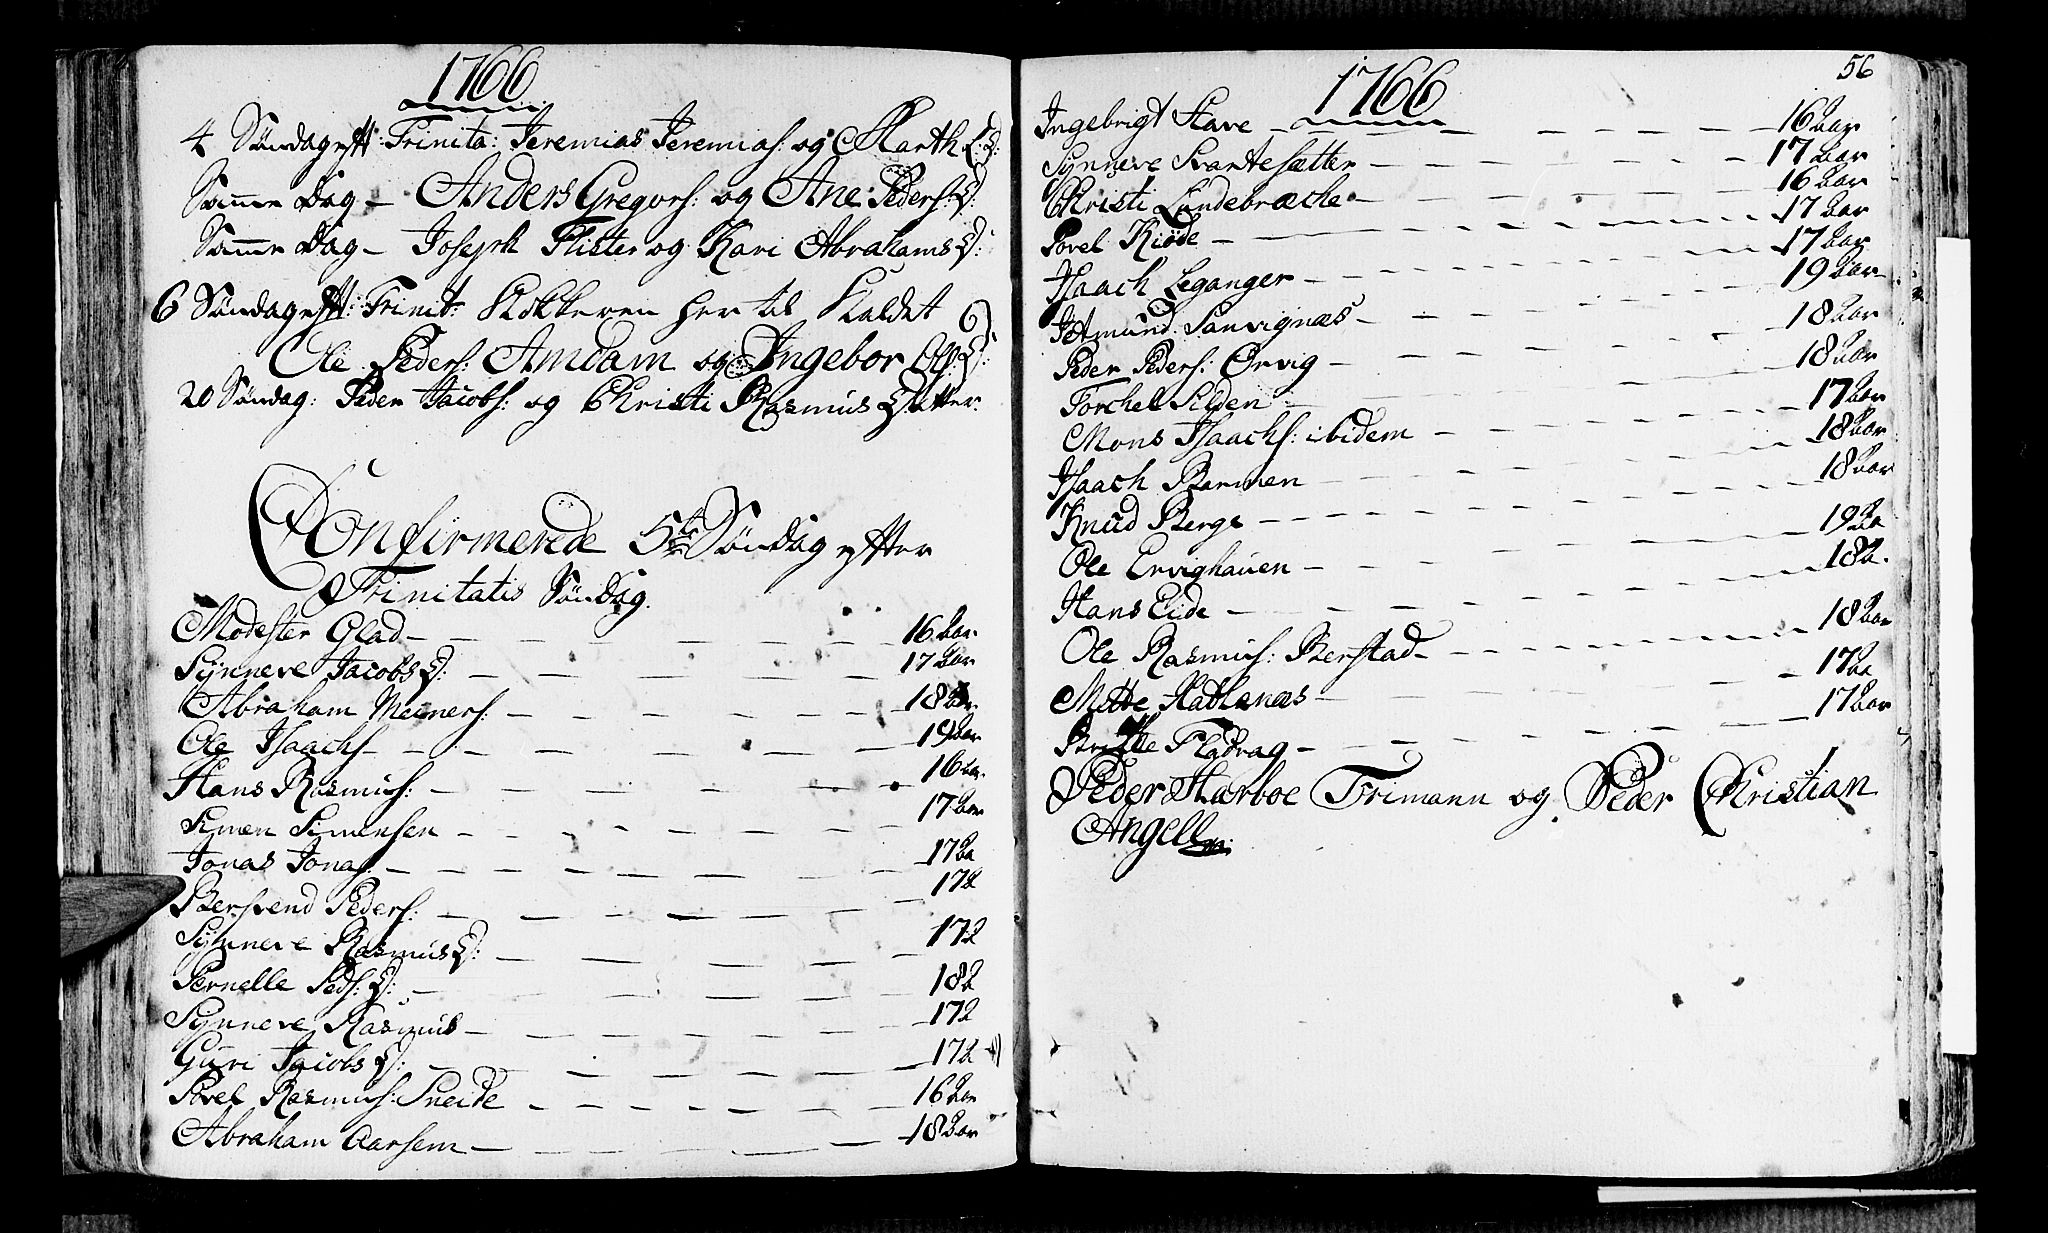 1766
4 Søndag eft: Trinita: Jeremias Jeremias: og Marth L:D:
Samme Dag - Anders Gregors: og Ane Peders:D:
Samme Dag - Joseph Flister og Kari Abrahams D:
6 Søndag eft: Trinit: Klokkeren her til Kaldet
Ole Peders: Amdam og Ingebor Ols:D:
20 Søndag: Peder Jacobs: og Christi Rasmus Datter:
Confirmerede 5te Søndag efter
Trinitatis Søndag.
Modester Glad - 16 aar.
Synneve Jacobs D: - 17 aar
Abraham Meiners: - 18 aar
Ole Isaachs - 19 aar
Hans Rasmus: - 16 aar.
Simen Simensen - 17 aar
Jonas Jonas: - 17 aa
Bersvend Peders: - 17 a
Synneve Rasmus D: - 17 a
Pernelle Peds: D: - 18 a
Synneve Rasmus - 17 a
Guri Jacobs D: - 17 a
Povel Rasmus: Sneide - 16 aar
Abraham Aarsem - 18 aar
56
1766
Ingebrigt Stave - 16 aar
Synneve Svartesætter - 17 aar
Christi Lundebræche - 16 aar
Povel Kiøde - 17 aar
Isaach Leganger - 17 aar
Asmund Sanvignæs - 19 aar
Peder Peders: Ørvig - 18 aar
Torchel Silden - 18 aar
Mons Isaachs: ibidem - 17 aar
Isaach Barmen - 18 aar
Knud Berge - 18 aar
Ole Ervighauen - 19 aa
Hans Eide - 18 a.
Ole Rasmus: Berstad - 18 aar
Mette Hathenæs - 17 aa
Britte Fladrag - 17 aar
Peder Harboe Frimann og Peder Christian
Angell